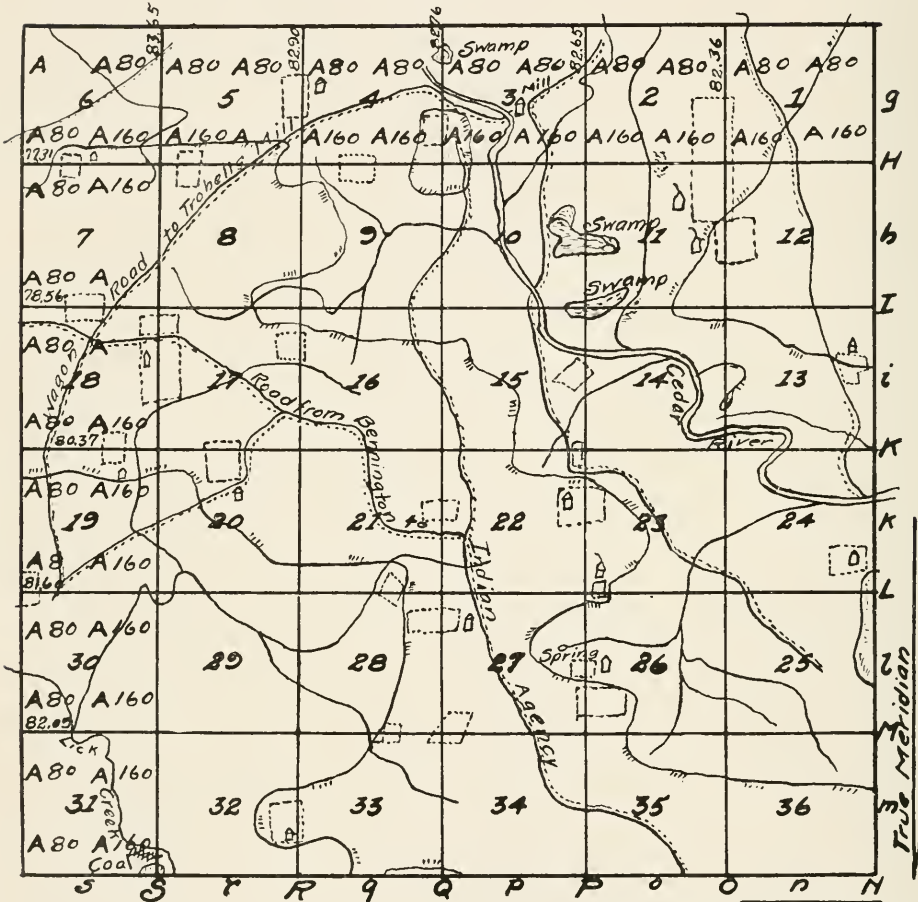 83.65 82.90 82.76 82.65 82.36
Swamp
A A80 A80 A80 A80 A80 A80 A80 A80 A80 A80 A80
6 5 4 3 Mill 2 1 g
A80 A160 A160 A A160 A160 A160 A160 A160 A160 A160
77.31 H
A80 A160
Wagon Road to Trobells Mill
7 8 9 10 Swamp 11 12 h
A80 A
78.56 Swamp I
A80 A
18 17 16 15 14 13 i
Road from Bennington to Indian Agency
Cedar River
A80 A160
80.37 K
A80 A160
19 20 21 22 23 24 k
A8 A160
81.60 L
A80 A160
30 29 28 27 Spring 26 25 l
A80 A160
82.05 M
Lick Creek
A80 A160
31 32 33 34 35 36 m
A80 A160
Coal
s S r R q Q p P o O n N
True Meridian